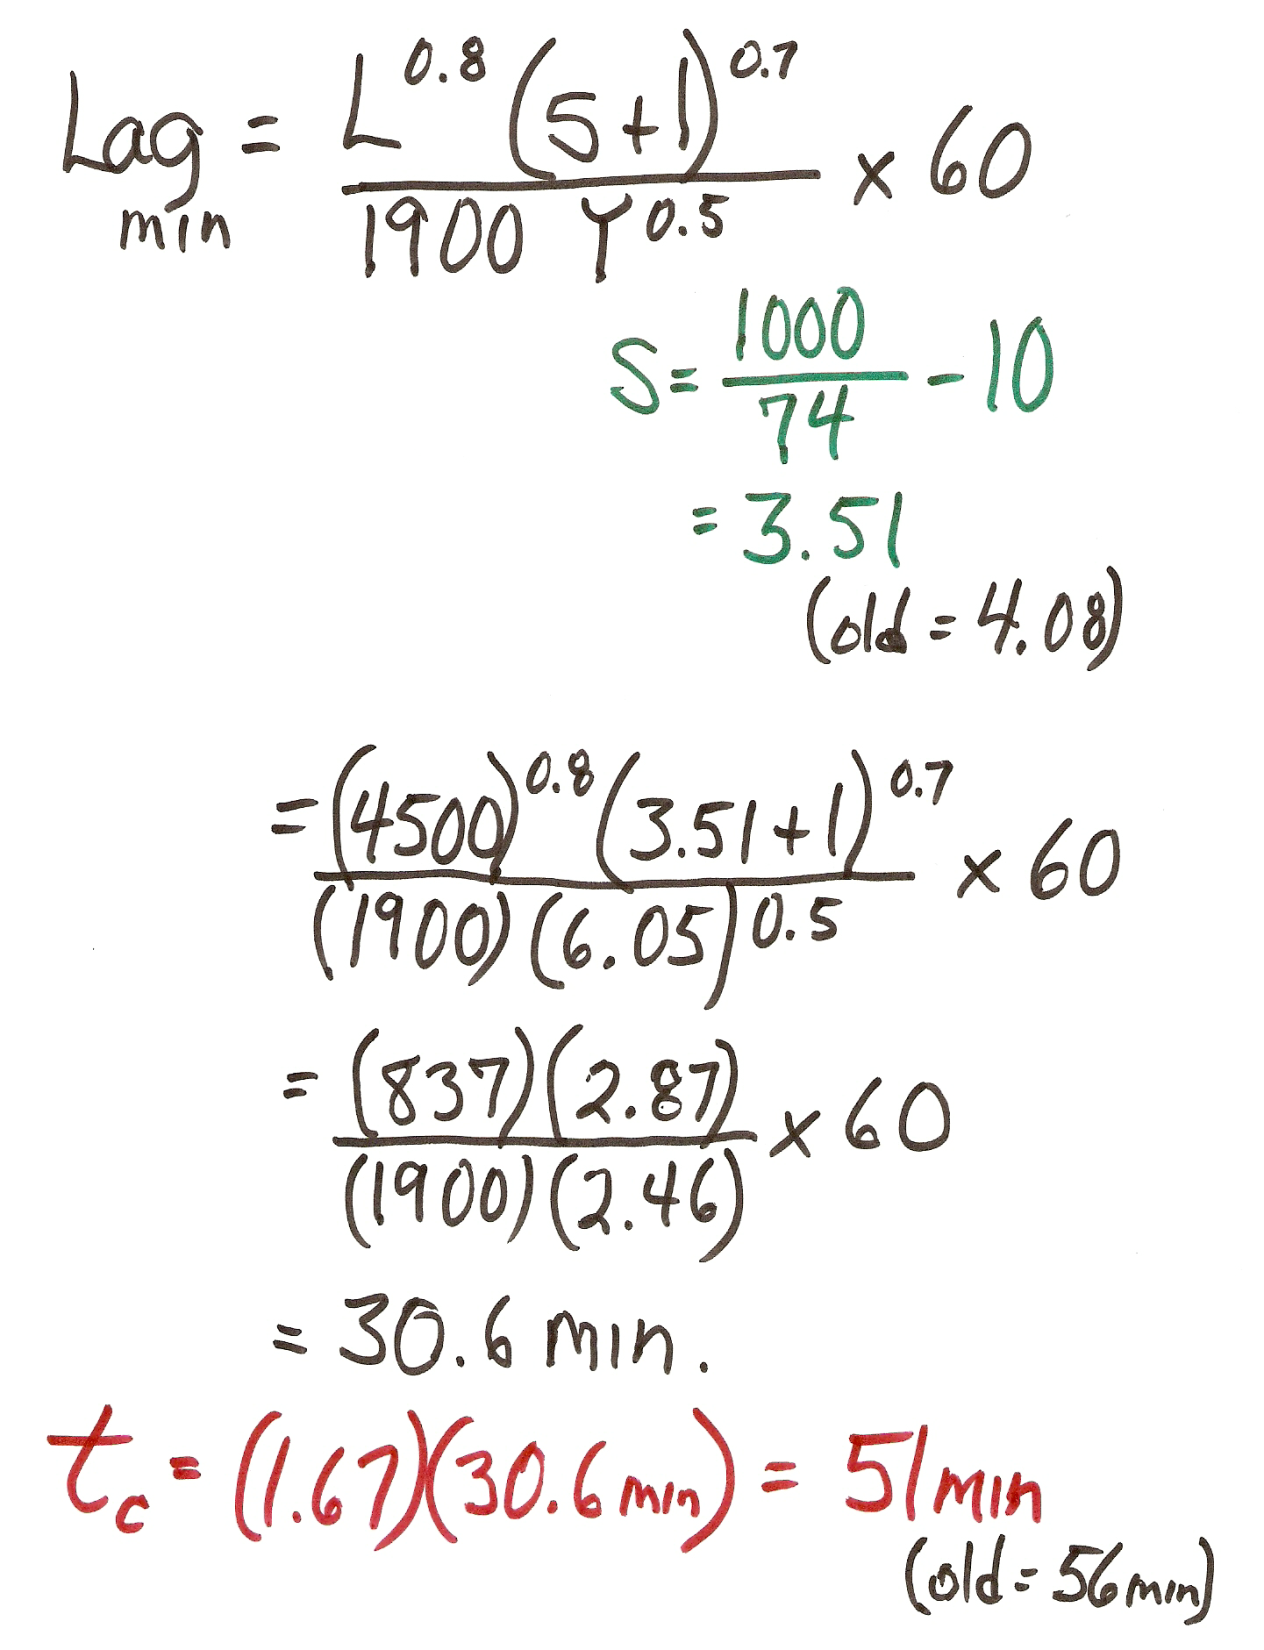 Lag min = L^0.8 (S+1)^0.7 / 1900 Y^0.5 × 60
S = 1000 / 74 - 10
= 3.51
(old = 4.08)
= (4500)^0.8 (3.51+1)^0.7 / (1900)(6.05)^0.5 × 60
= (837)(2.87) / (1900)(2.46) × 60
= 30.6 min.
tc = (1.67)(30.6 min) = 51 min
(old = 56 min)